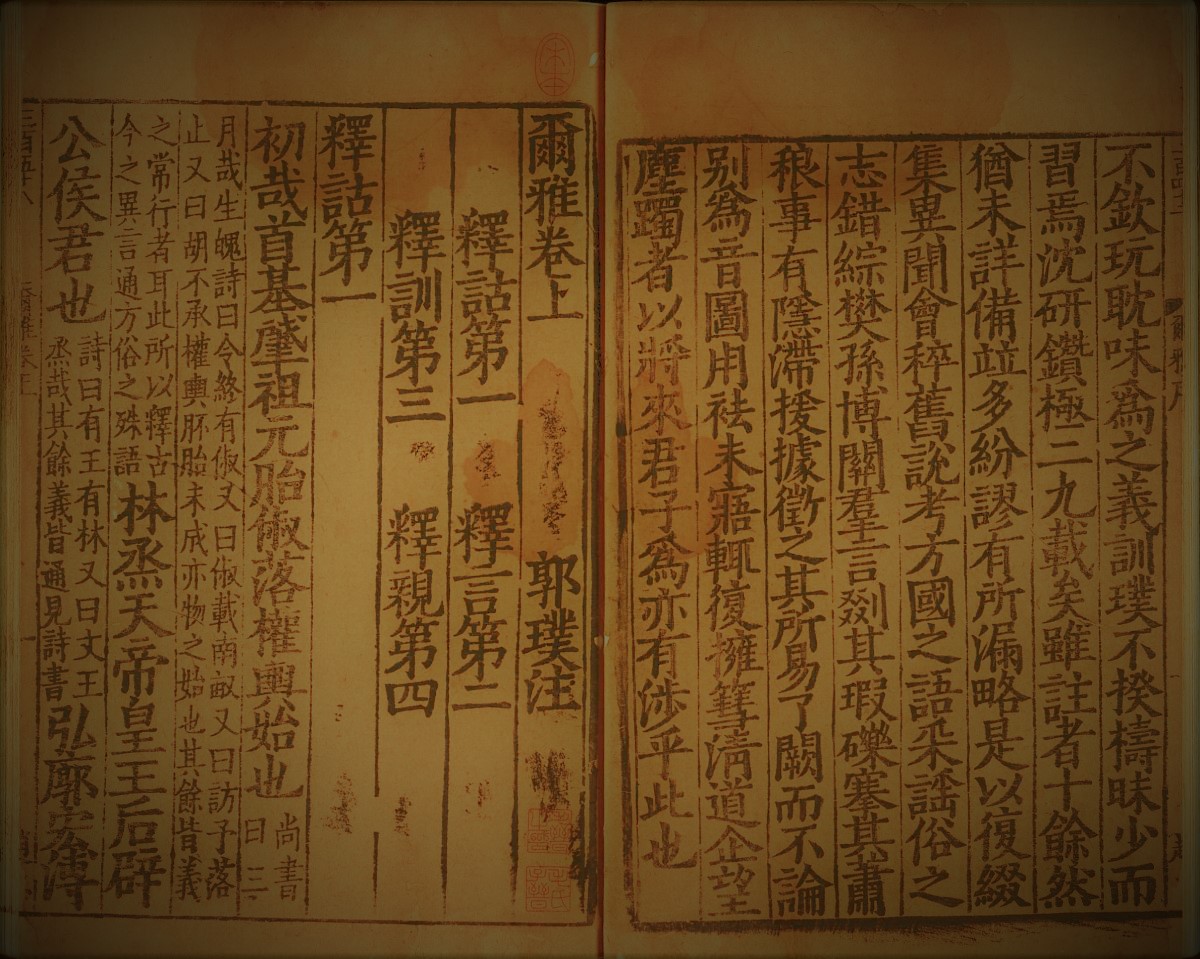 不欽玩耽味爲之義訓璞不揆檮昧少而
習焉沈研鑽極二九載矣雖註者十餘然
猶未詳備竝多紛謬有所漏略是以復綴
集異聞會稡舊說考方國之語采謡俗之
志錯綜樊孫博關羣言剟其瑕礫搴其蕭
稂事有隱滯援據徵之其所易了闕而不論
别爲音圖用袪未寤輒復擁篲淸道企望
塵躅者以將來君子爲亦有涉乎此也
爾雅卷上 郭璞注
釋詁第一 釋言第二
釋訓第三 釋親第四
釋詁第一
初哉首基肇祖元胎俶落權輿始也 尚書
曰三
月哉生魄詩曰令終有俶又曰俶載南畝又曰訪予落
止又曰胡不承權輿胚胎未成亦物之始也其餘皆義
之常行者耳此所以釋古
今之異言通方俗之殊語 林烝天帝皇王后辟
公侯君也 詩曰有王有林又曰文王
烝哉其餘義皆通見詩書 弘廓宏溥